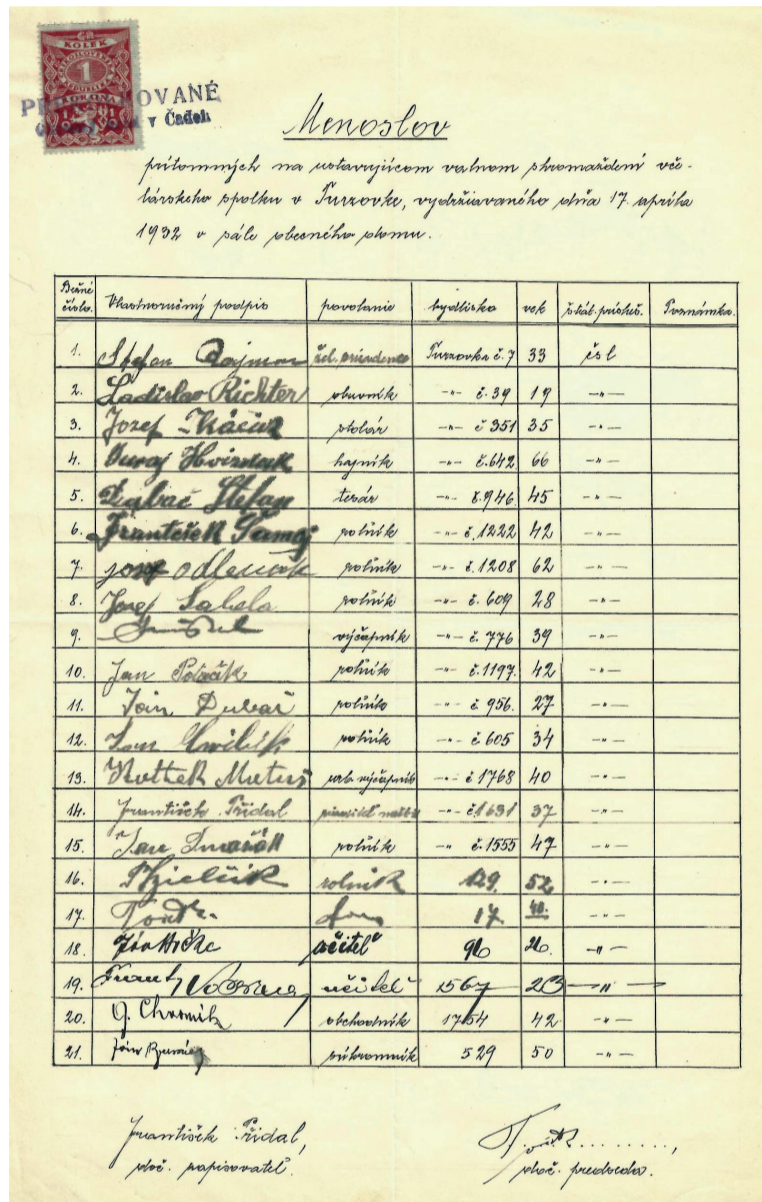 KOLEK
1
KORUNA
OVANÉ
v Čadci
Menoslov
prítomných na ustavujúcom valnom shromaždení vče-
lárskeho spolku v Turzovke, vydržiavaného dňa 17. apríla
1932 v sále obecného domu.
Bežné číslo. Vlastnoručný podpis povolanie bydlisko vek štát. prísluš. Poznámka.
1. Štefan žel. zriadenec Turzovka č. 7 33 čsl
2. Ladislav Richter obuvník -"- č. 39 19 -"-
3. Jozef obuvník stolár -"- č 351 35 -"-
4. Juraj Hvizdák hajník -"- č. 642 66 -"-
5. Ďubač Štefan tesár -"- č. 946 45 -"-
6. František roľník -"- č. 1222 42 -"-
7. Jozef roľník -"- č. 1208 62 -"-
8. Jozef roľník -"- č. 609 28 -"-
9. výčapník -"- č. 776 39 -"-
10. Jan roľník -"- č. 1197. 42 -"-
11. Ján roľník -"- č 956. 27 -"-
12. Jan roľník -"- č 605 34 -"-
13. Matuš výčapník -"- č 1768 40 -"-
14. František Přidal -"- č. 1631 37 -"-
15. Jan roľník -"- č. 1555 47 -"-
16. rolnik 129. 52 -"-
17. 17. -"-
18. učiteľ 96 26. -"-
19. učiteľ 1567 23 -"-
20. J. Chromik obchodník 1754 42 -"-
21. Ján súkromník 529 50 -"-
František Přidal,
doč. zapisovateľ.
doč. predseda.